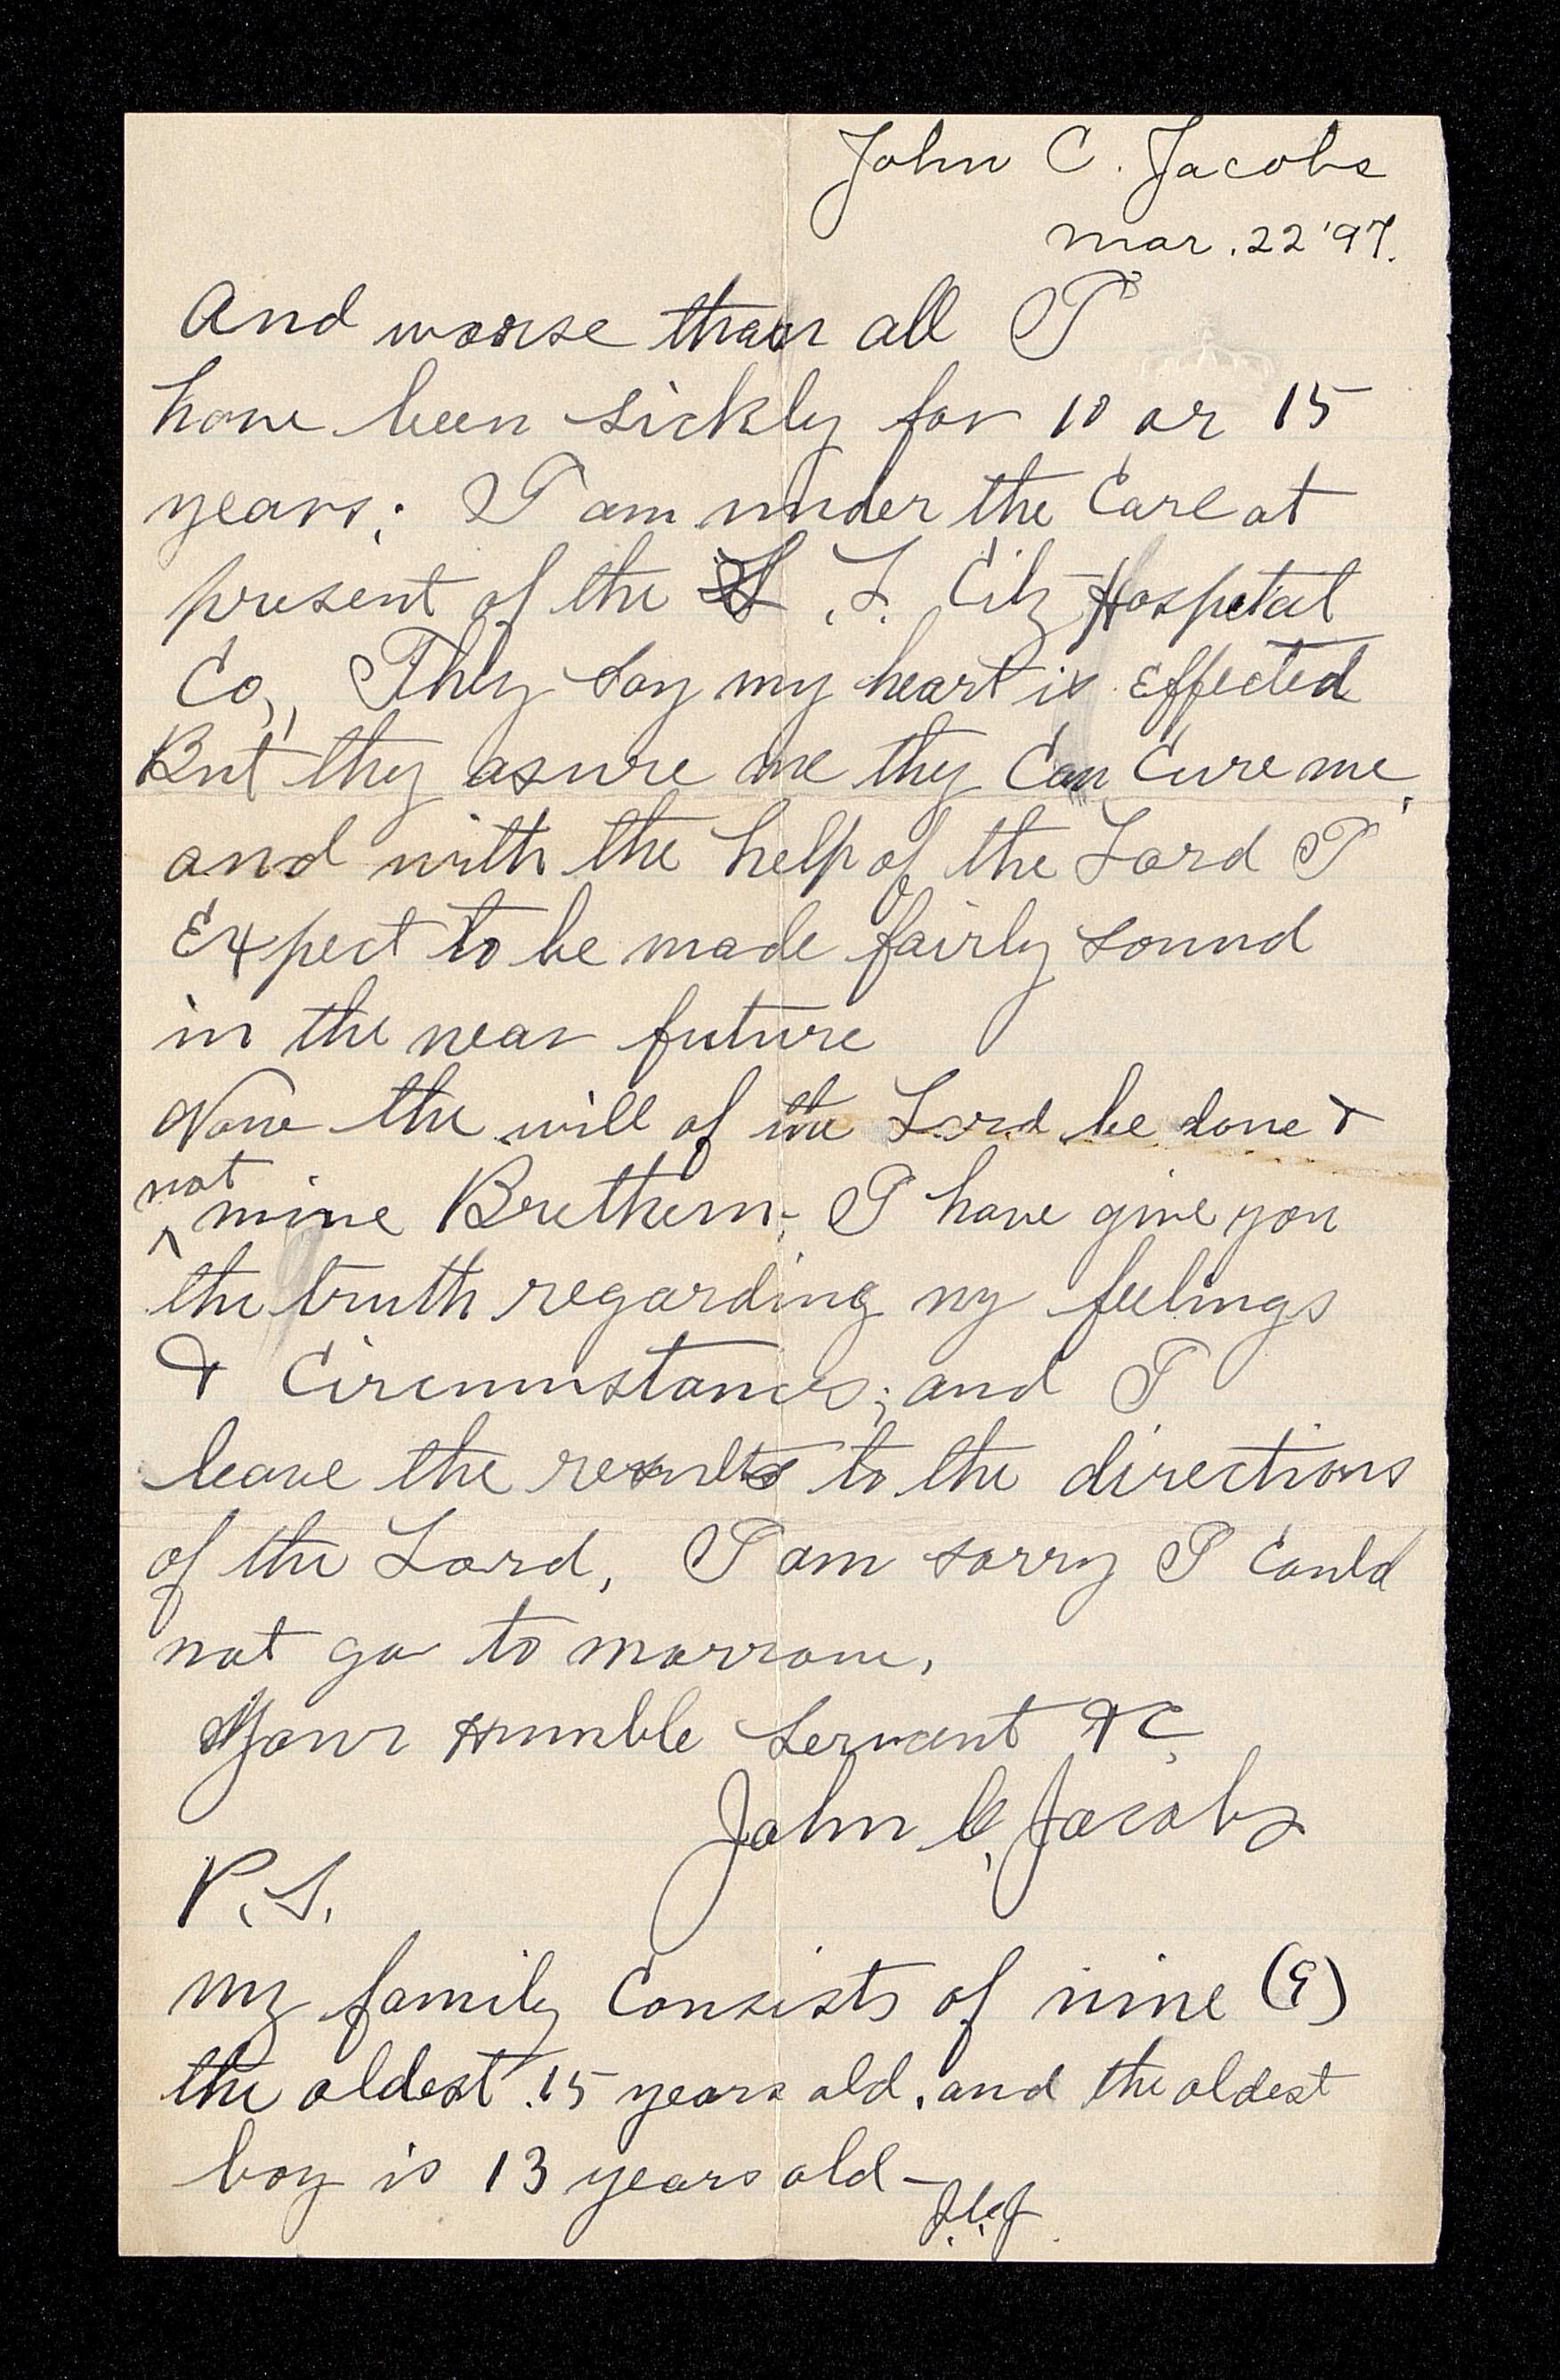 John C. Jacobs
Mar. 22 '97.
And worse than all I
have been sickly for 10 or 15
years; I am under the Care at
present of the S. L. City Hospetal
Co,, They Say my heart is Effected
But they asure me they Can Cure me,
and with the help of the Lord I
Expect to be made fairly sound
in the near future
Now the will of the Lord be done &
not
mine Brethern; I have give you
the truth regarding my feelings
& Circumstances; and I
leave the results to the directions
of the Lord, I am sorry I Could
not go to morrow,
Your Humble Servant &C,
John C, Jacobs
P.S.
my family Consists of nine (9)
the oldest 15 years old. and the oldest
boy is 13 years old–
J.C.J.